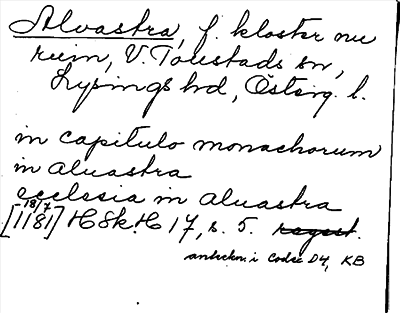 Alvastra, f. kloster nu
ruin, V. Tollstads sn,
Lysings hd, Österg. l.
in capitulo monachorum
in aluastra
ecclesia in aluastra
18/7
[1181] HSkH 17, s. 5. regest.
anteckn. i Codex D4, KB